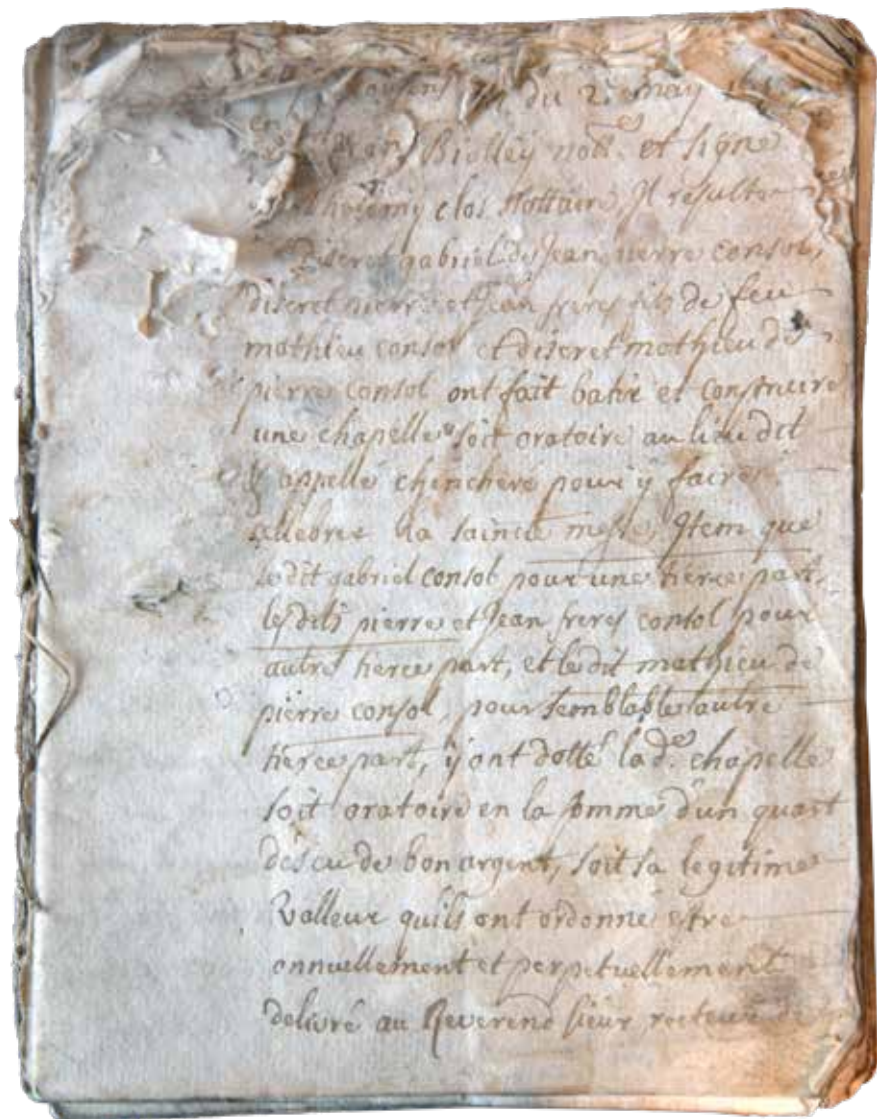 du 2e may
Biolley nott.e et signé
clos nottaire Il resulte
Discret gabriel de Jean pierre consol,
discret pierre et Jean freres fils de feu
mathieu consol et discret mathieu de
pierre consol ont fait batir et construire
une chapelle soit oratoire au lieu dit
appellé chincheré pour y faire
cellebrer la saincte messe, Item que
ledit gabriel consol pour une tierce part,
lesdits pierre et Jean freres consol pour
autre tierce part, et ledit mathieu de
pierre consol, pour semblable autre
tierce part, y ont dotté lad.e chapelle
soit oratoire en la somme d'un quart
descu de bon argent, soit sa legitime
valleur quils ont ordonné estre
annuellement et perpetuellement
delivré au Reverend sieur recteur de